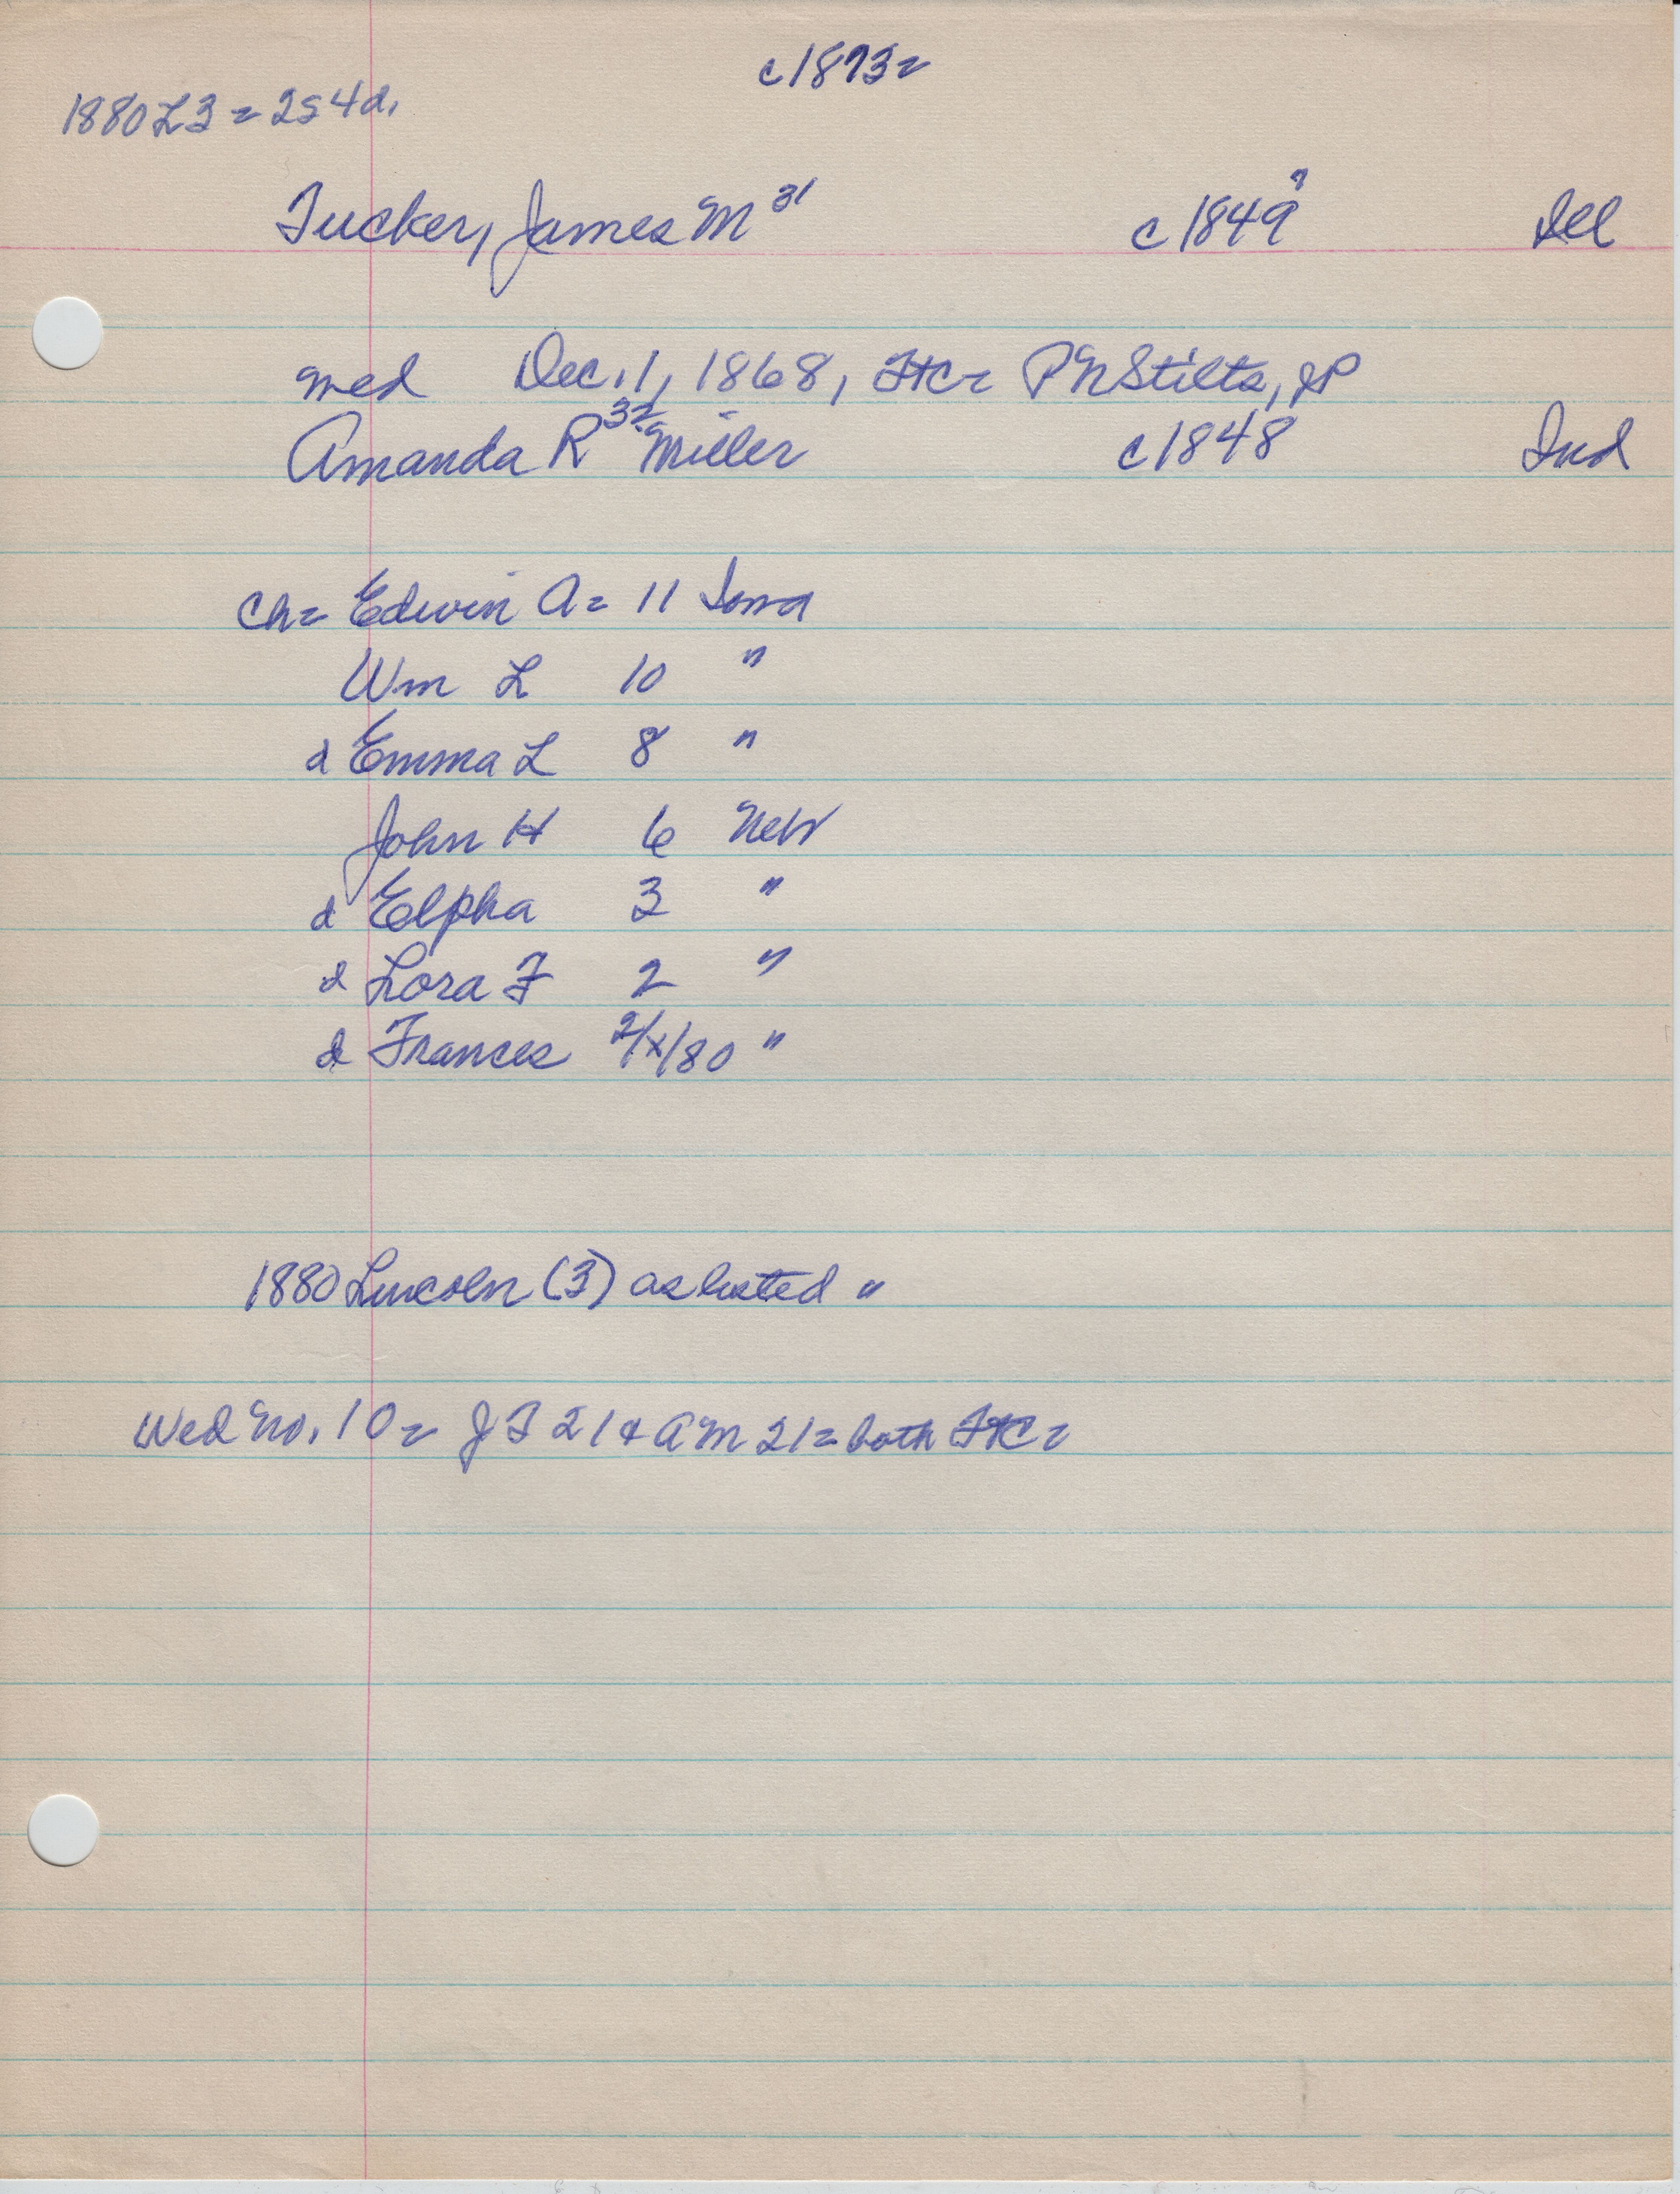 c1873=
1880 L3 = 2s 4d.
Tucker, James M 31 c1849 ? Ill
med Dec. 1, 1868, FtC= PN Stilts, JP
Amanda R 32 Miller c1848 Ind
Ch= Edwin A= 11 Iowa
Wm L 10 "
d Emma L 8 "
John H 6 Neb
d Elpha 3 "
d Lora F 2 "
d Frances 2/x/80 "
1880 Lincoln (3) as listed "
Wed no. 10= JT 21 & AM 21= both FtC=